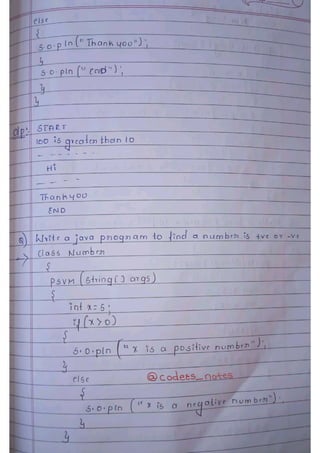 else
{
S.o.pln("Thank you");
}
S.o.pln("END");
}
}
o/p: START
100 is greater than 10
- - - - - - -
Hi
- - - -
Thankyou
END
Q) Write a java program to find a number is +ve or -ve
-> Class Number
{
PSVM (String[] args)
{
int x=5;
if(x>0)
{
S.o.pln("x is a positive number");
}
else
@coders_notes
{
S.o.pln("x is a negative number");
}
}